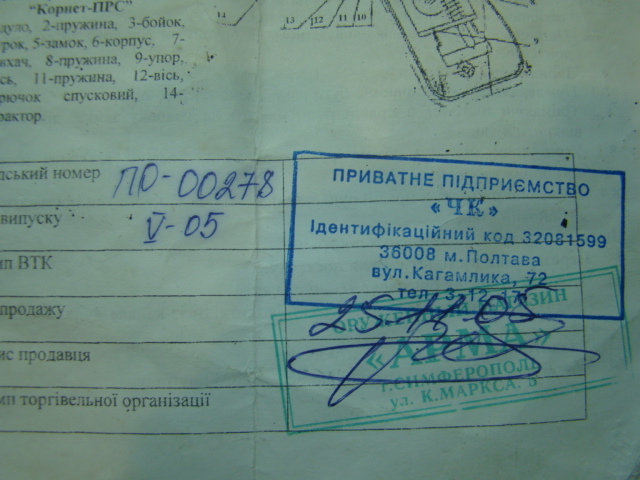 "Корнет-ПРС"
дуло, 2-пружина, 3-бойок,
рок, 5-замок, 6-корпус, 7-
вхач, 8-пружина, 9-упор,
сь, 11-пружина, 12-вісь,
рючок спусковий, 14-
рактор.
14
13 12 11 10
9
дський номер ПО-00278
випуску V-05
ип ВТК
продажу
ис продавця
мп торгівельної організації
ПРИВАТНЕ ПІДПРИЄМСТВО
«ЧК»
Ідентифікаційний код 32081599
36008 м.Полтава
вул.Кагамлика, 72
тел. 3-12-17
МАГАЗИН
«АРМА»
г.СИМФЕРОПОЛЬ
ул. К.МАРКСА. 5